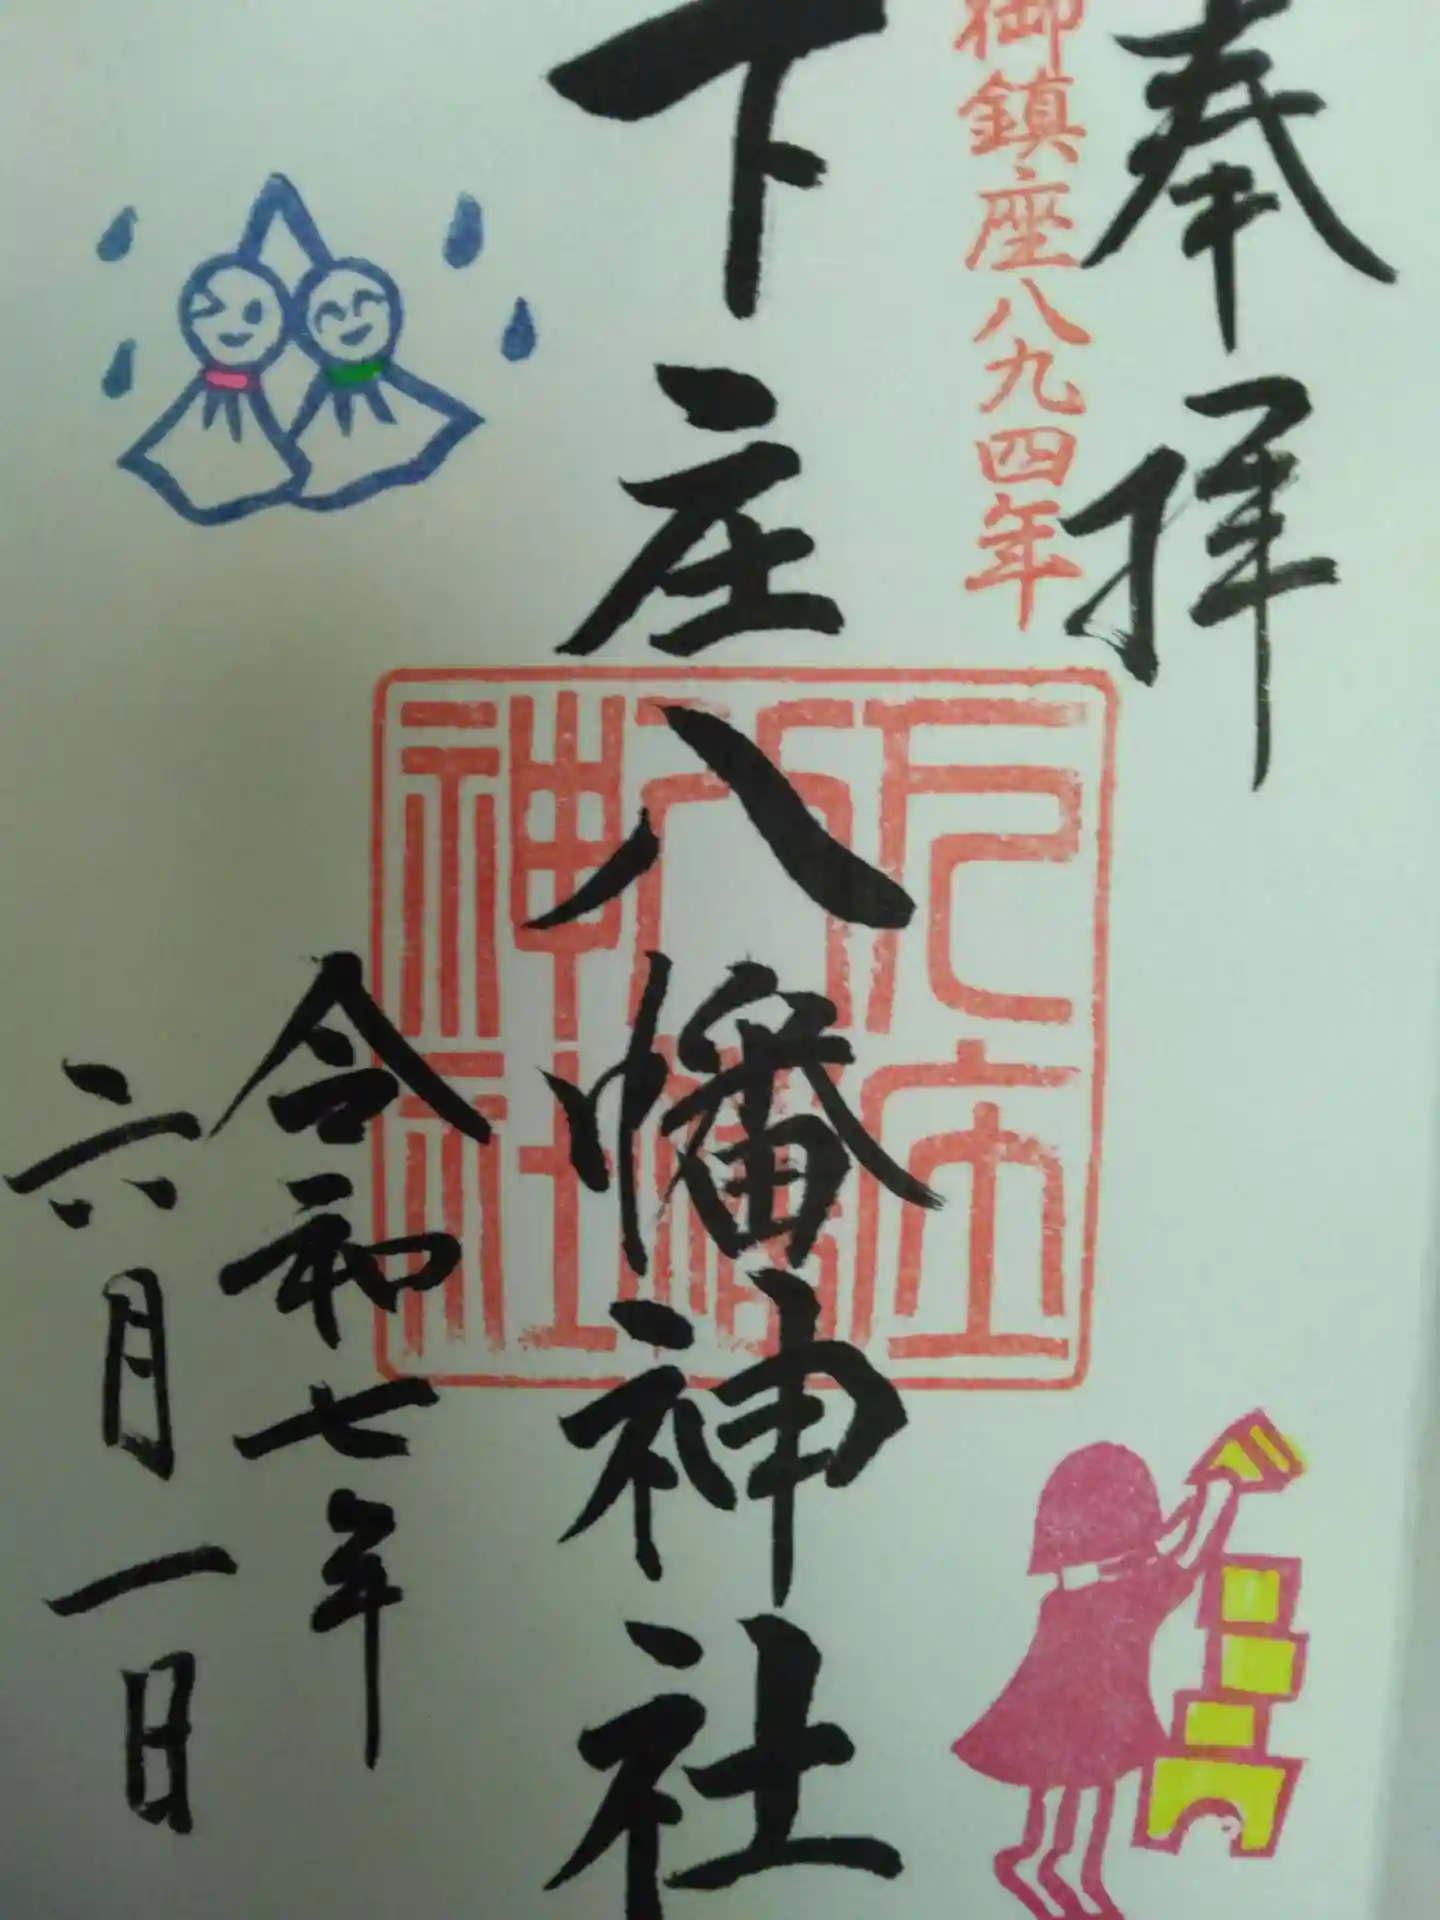 奉拝
御鎮座八九四年
下庄八幡神社
下庄
八幡
神社
令和七年
六月一日